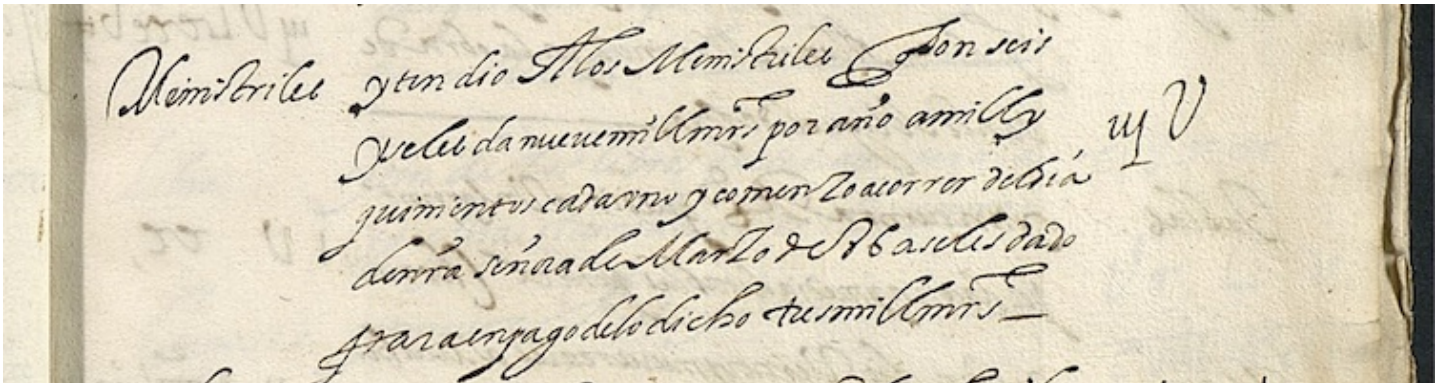 Ministriles yten dio A los Ministriles q son seis
y se les da nueve mill mrs por año a mill y
quinientos cada uno y comenzo a correr del dia iij U
de nra señora de Marzo de ase les dado
para en pago de lo dicho tres mill mrs